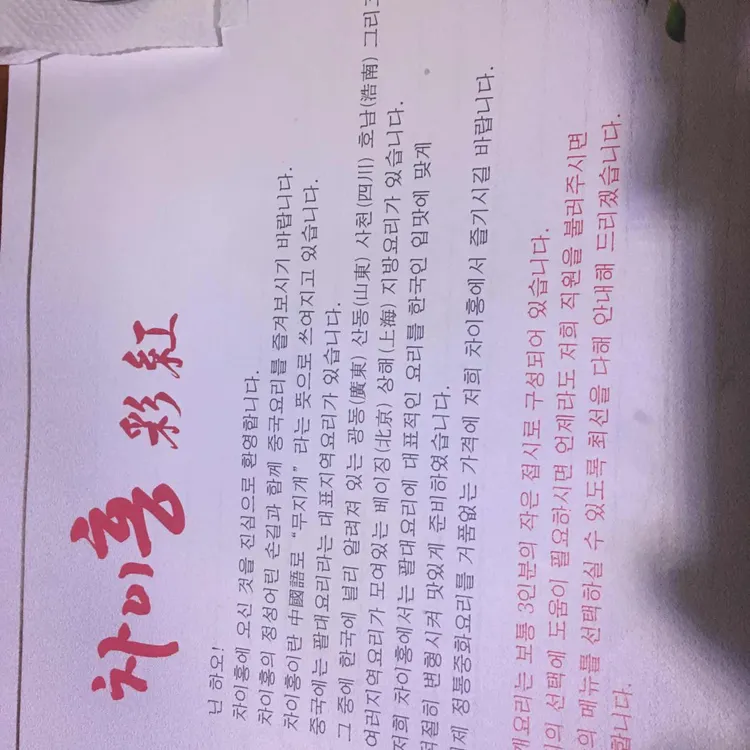 차이홍 彩紅
닌 하오!
차이홍에 오신 것을 진심으로 환영합니다.
차이홍의 정성어린 손길과 함께 중국요리를 즐겨보시기 바랍니다.
차이홍이란 中國語로 “무지개” 라는 뜻으로 쓰여지고 있습니다.
중국에는 팔대요리라는 대표지역요리가 있습니다.
그 중에 한국에 널리 알려져 있는 광동(廣東) 산동(山東) 사천(四川) 호남(浩南) 그리고
여러지역요리가 모여있는 베이징(北京) 상해(上海) 지방요리가 있습니다.
저희 차이홍에서는 팔대요리에 대표적인 요리를 한국인 입맛에 맞게
적절히 변형시켜 맛있게 준비하였습니다.
이제 정통중화요리를 거품없는 가격에 저희 차이홍에서 즐기시길 바랍니다.
개요리는 보통 3인분의 작은 접시로 구성되어 있습니다.
의 선택에 도움이 필요하시면 언제라도 저희 직원을 불러주시면
의 메뉴를 선택하실 수 있도록 최선을 다해 안내해 드리겠습니다.
랍니다.